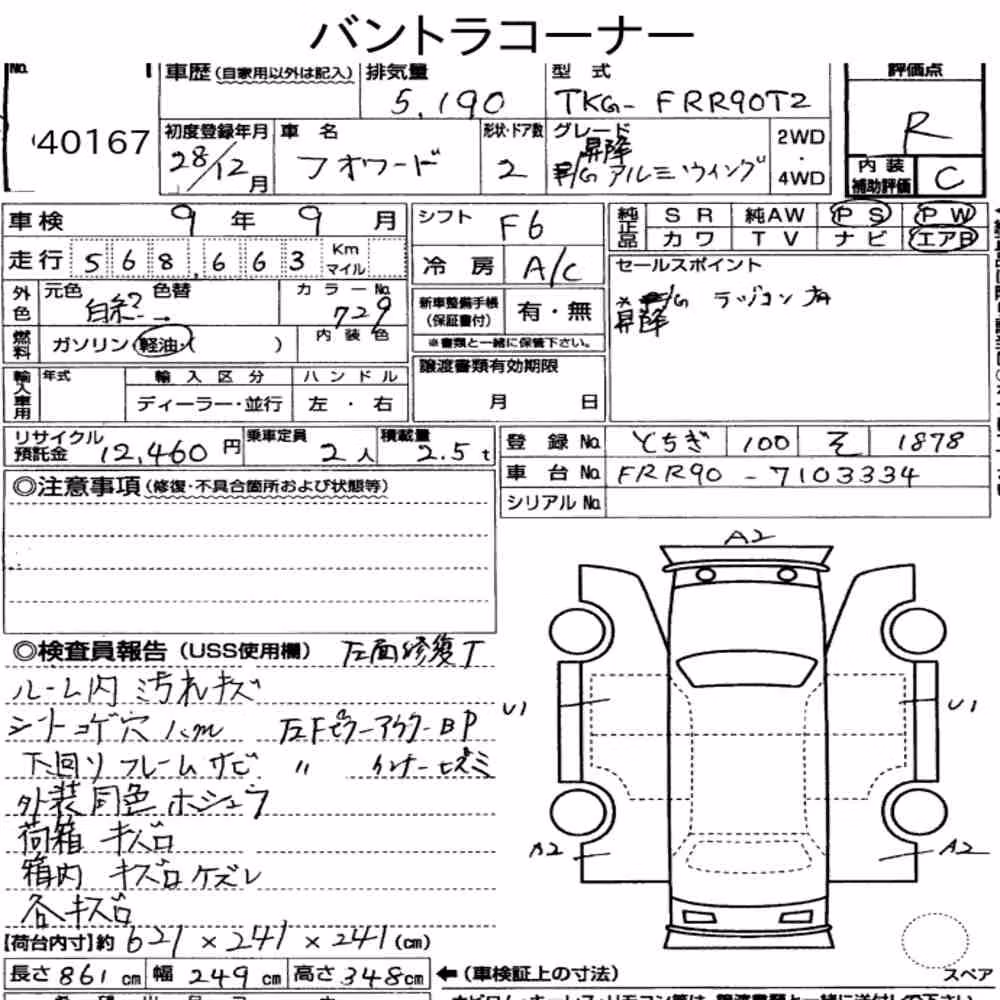 バントラコーナー
No. 1 車歴(自家用以外は記入) 排気量 型式 評価点
40167 5,190 TKG- FRR90T2 R
初度登録年月 車名 形状・ドア数 グレード 2WD・4WD
28/12月 フォワード 2 昇降 P/G アルミウイング
内装補助評価 C
車検 9年9月 シフト F6 純正品 SR 純AW PS PW
走行 568,663 Km マイル 冷房 A/C カワ TV ナビ エアB
外色 元色 色替 カラーNo. 729
新車整備手帳(保証書付) 有・無
※書類と一緒に保管下さい。
セールスポイント
昇降 P/G ラジコン 有
燃料 ガソリン 軽油・( ) 内装色
譲渡書類有効期限
月 日
輸入車用 年式 輸入区分 ハンドル
ディーラー・並行 左・右
リサイクル預託金 12,460円 乗車定員 2人 積載量 2.5t
登録No. とちぎ 100 そ 1878
車台No. FRR90 - 7103334
シリアルNo.
◎注意事項(修復・不具合箇所および状態等)
◎検査員報告(USS使用欄) 左面修復T
ルーム内 汚れキズ
シートコゲ穴 1cm 左FピラーアウターBP
下回り フレームサビ 〃 インナーヒズミ
外装同色ホシュウ
荷箱 キズ凹
箱内 キズ凹ケズレ
各キズ凹
A2
U1 U1
A2 A2
【荷台内寸】約 621×241×241(cm)
長さ861cm 幅249cm 高さ348cm ←(車検証上の寸法)
スペア